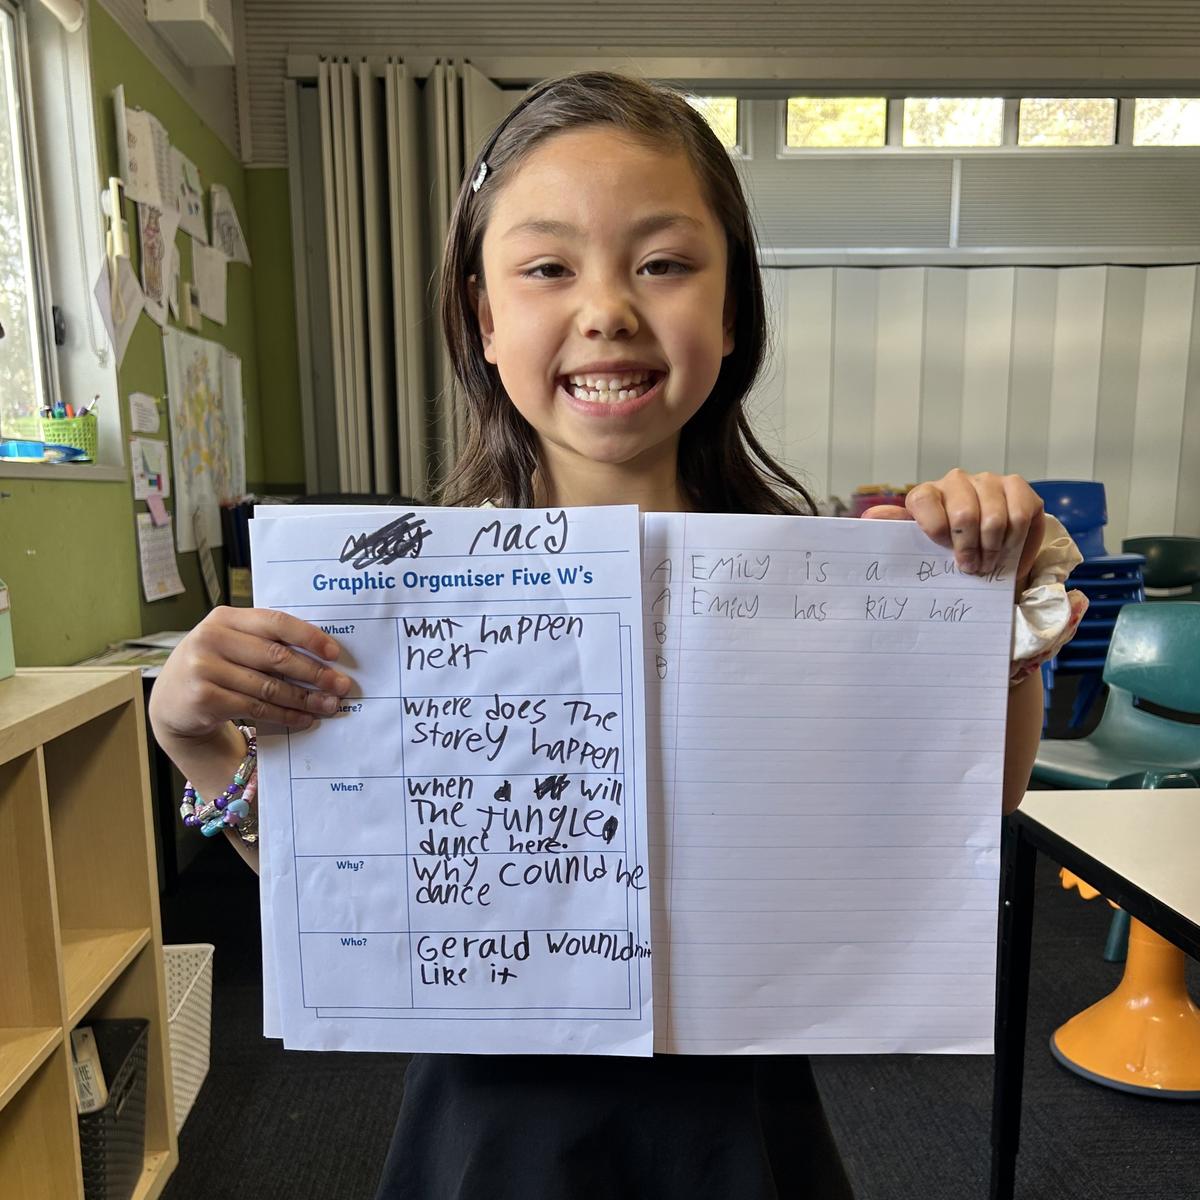 Macy Macy
Graphic Organiser Five W's
What?
what happen
next
here?
where does The
storey happen
When?
when a will
The Jungle
dance here.
Why?
why counld he
dance
Who?
Gerald wounldnit
Like it
A EMiLY is a
A EMiLY has RiLY hair
B
B